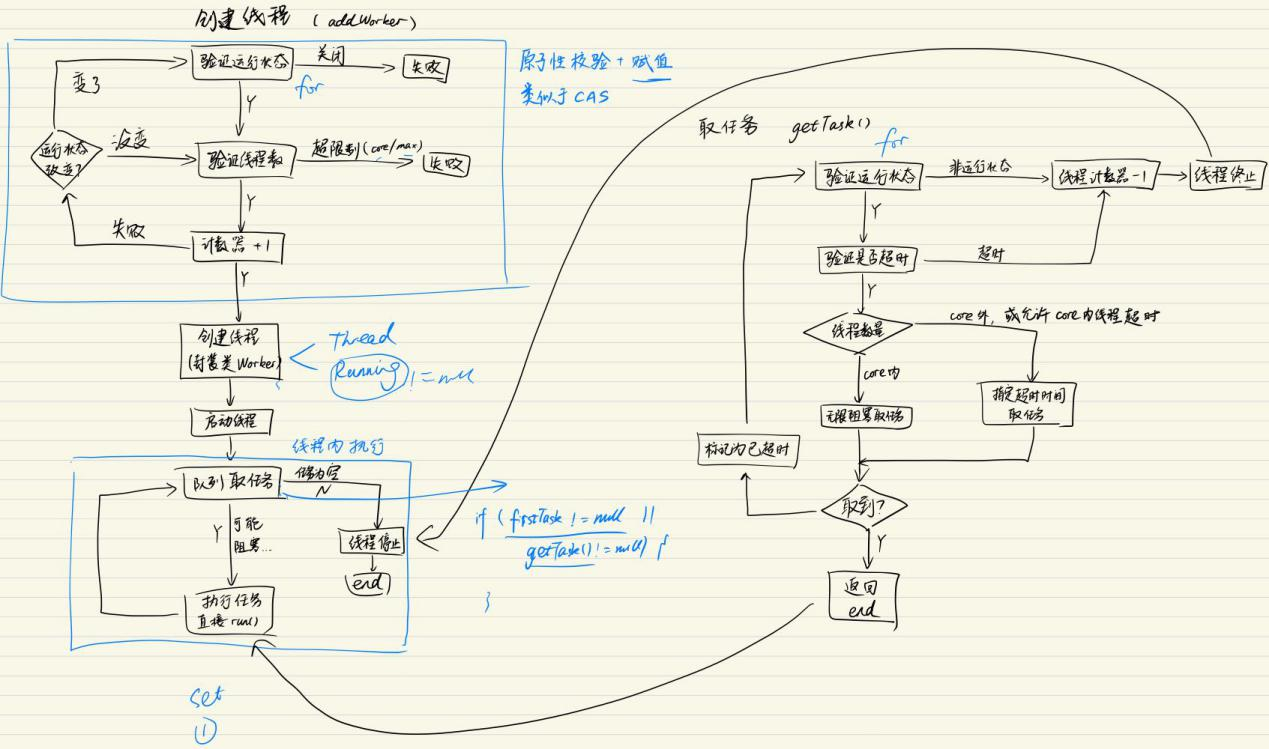 创建线程 (addWorker)
验证运行状态
关闭
失败
for
变了
Y
运行状态
改变?
没变
验证线程数
超限制(core/max)
失败
Y
失败
计数器 +1
Y
原子性校验 + 赋值
类似于 CAS
创建线程
(封装类 Worker)
Thread
Running != null
启动线程
线程内执行
队列取任务
任务为空
N
Y
可能
阻塞...
线程停止
end
执行任务
直接 run()
if (firstTask != null ||
getTask() != null) {
}
set
①
取任务 getTask()
for
验证运行状态
非运行状态
线程计数器 -1
线程终止
Y
验证是否超时
超时
Y
线程数量
core外, 或允许 core内线程超时
core内
无限阻塞取任务
指定超时时间
取任务
标记为已超时
取到?
Y
返回
end